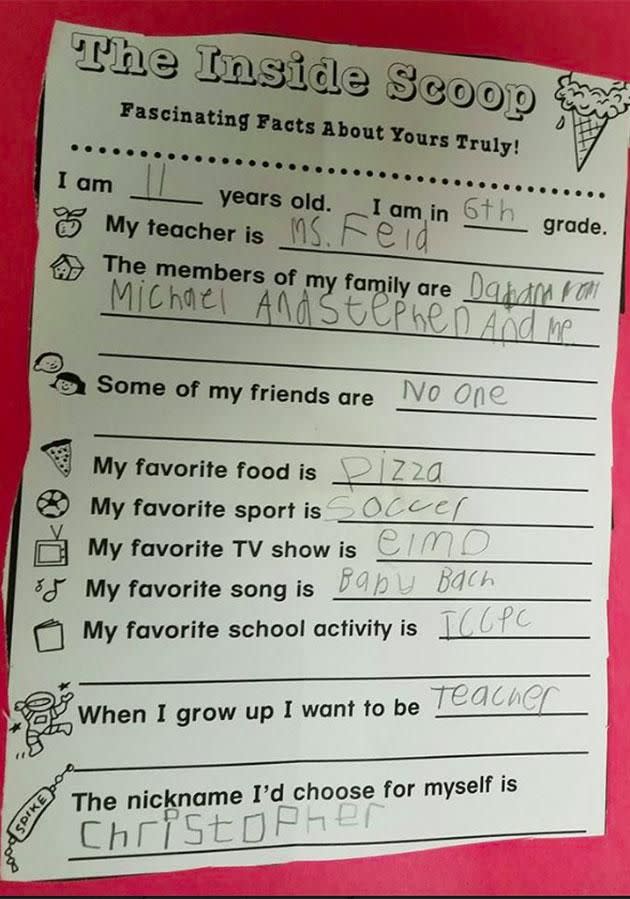 The Inside Scoop
Fascinating Facts About Yours Truly!
I am 11 years old. I am in 6th grade.
My teacher is Ms. Feid
The members of my family are
Michael And Stephen And me.
Some of my friends are No One
My favorite food is pizza
My favorite sport is Soccer
My favorite TV show is elmo
My favorite song is Baby Bach
My favorite school activity is
When I grow up I want to be Teacher
SPIKE
The nickname I'd choose for myself is
Christopher